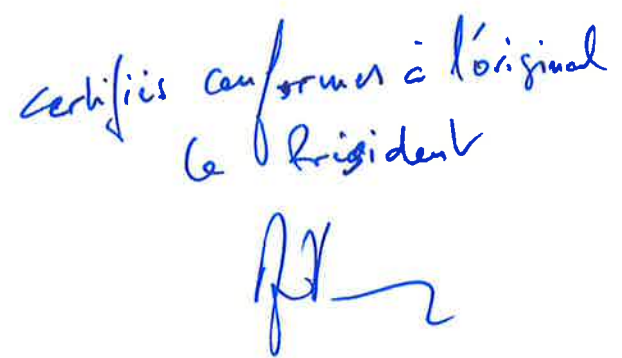 certifiés conformes à l'original
Le Président